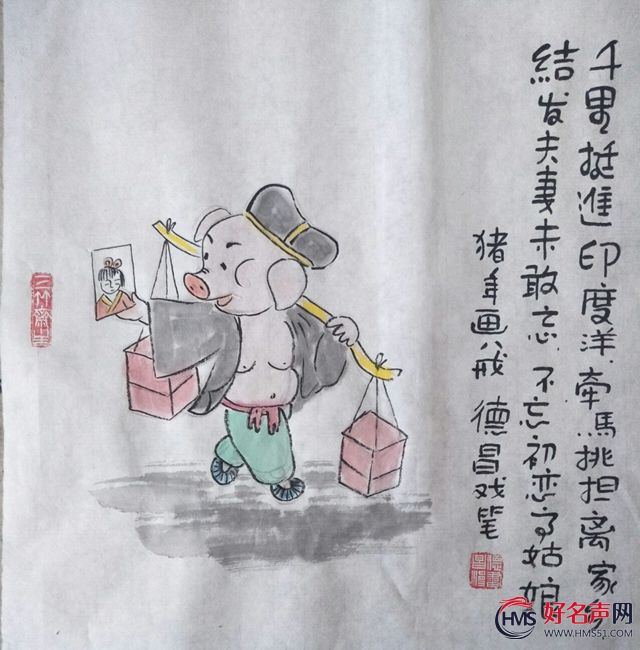 千里挺進印度洋牵馬挑担离家乡
結发夫妻未敢忘不忘初恋高姑娘
猪年画八戒德昌戏笔
HMS 好名声网
WWW.HMS51.COM